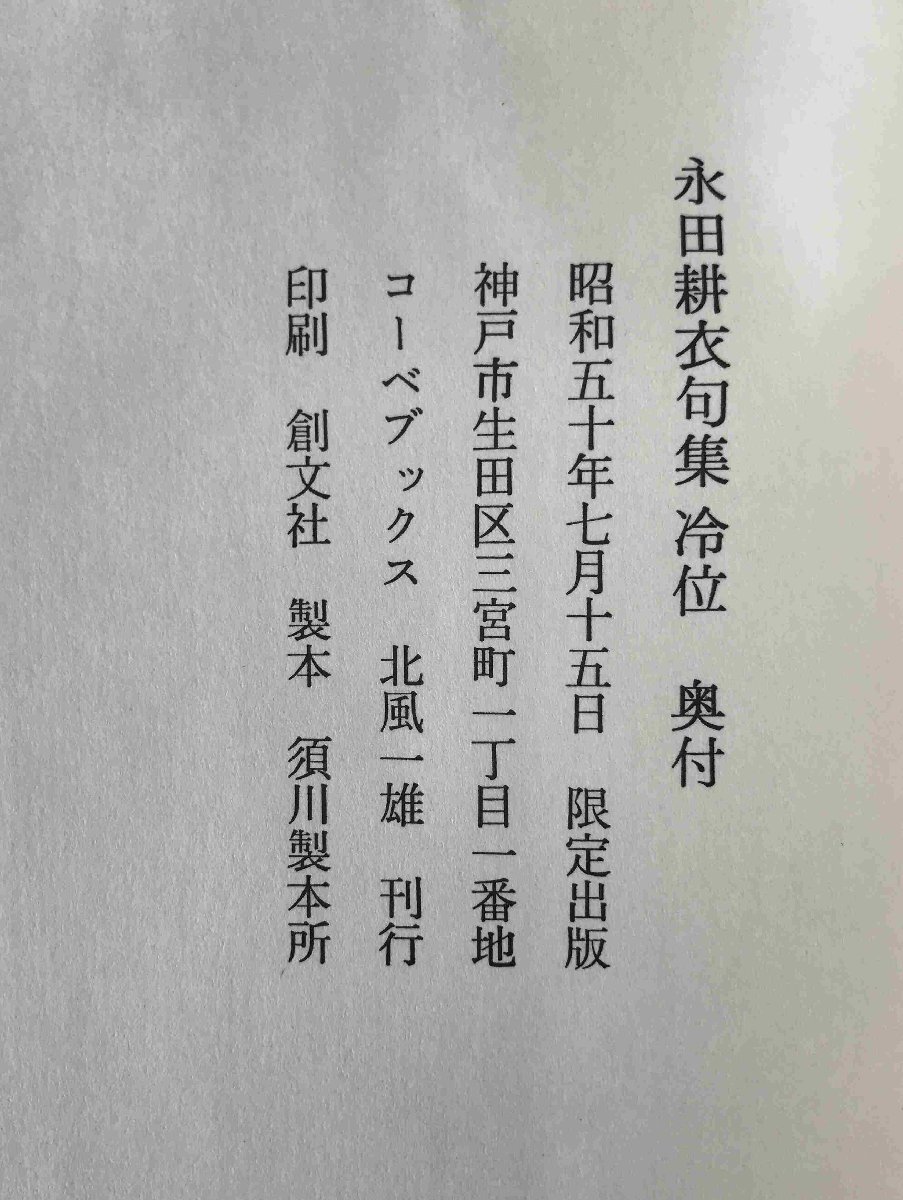 永田耕衣句集 冷位　奥付
昭和五十年七月十五日　限定出版
神戸市生田区三宮町一丁目一番地
コーベブックス　北風一雄　刊行
印刷　創文社　製本　須川製本所